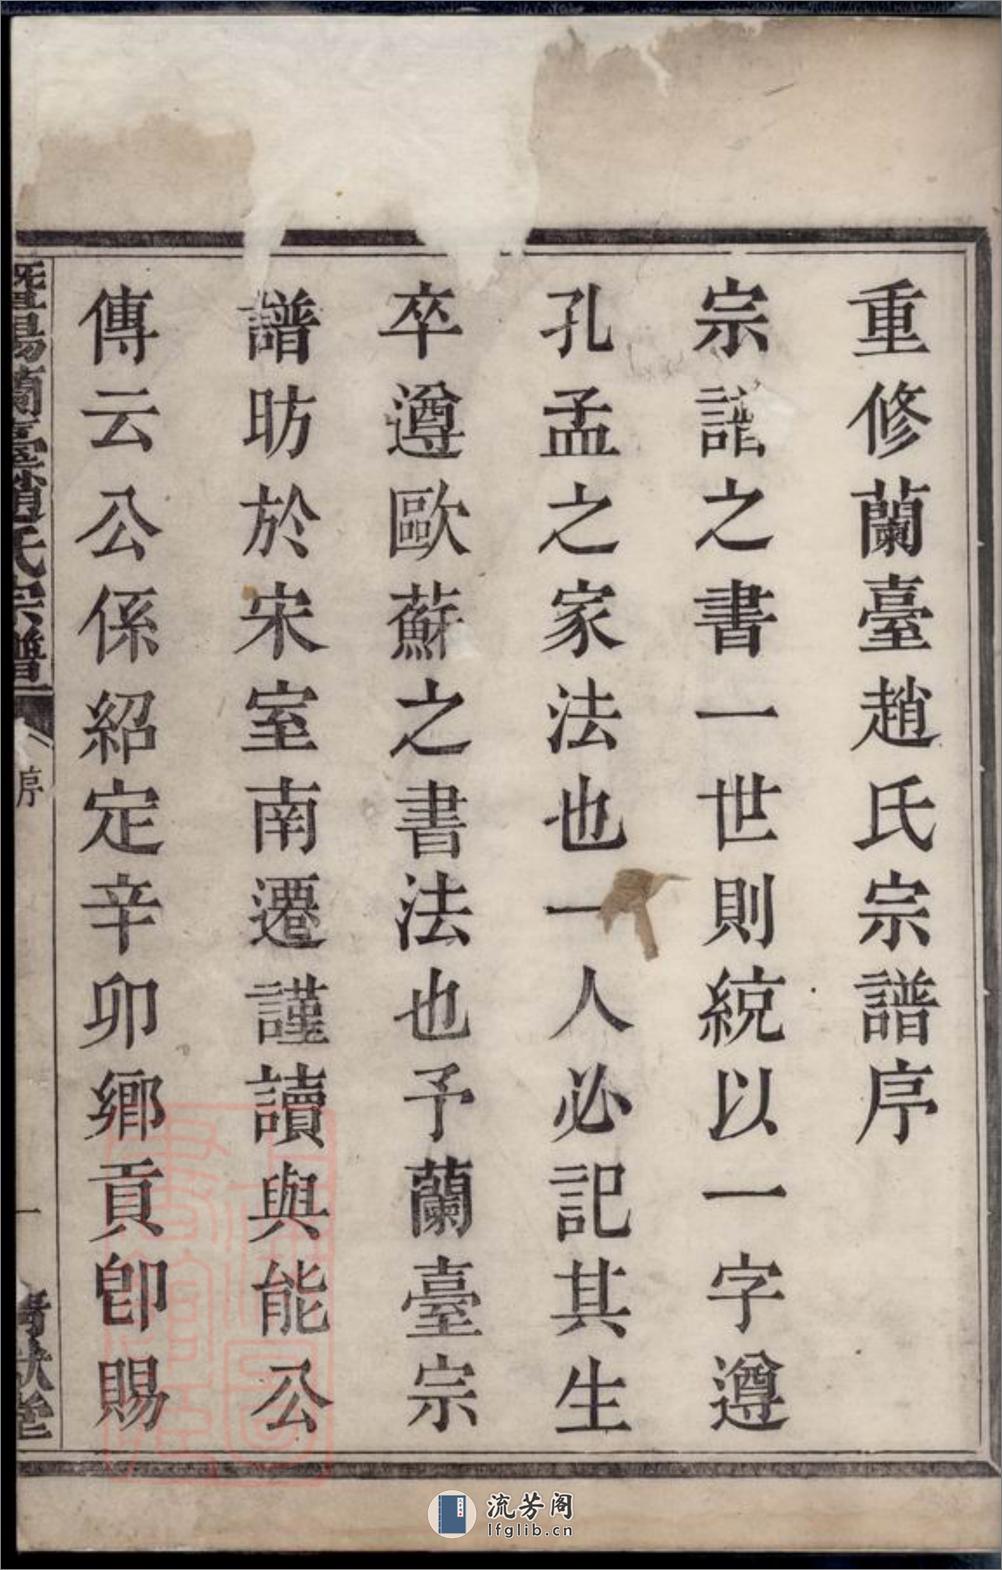 重修蘭臺趙氏宗譜序
宗譜之書一世則統以一字遵
孔孟之家法也一人必記其生
卒遵歐蘇之書法也予蘭臺宗
譜昉於宋室南遷謹讀與能公
傳云公係紹定辛卯鄉貢卽賜
暨陽蘭臺趙氏宗譜
序
一
流芳阁
lfglib.cn